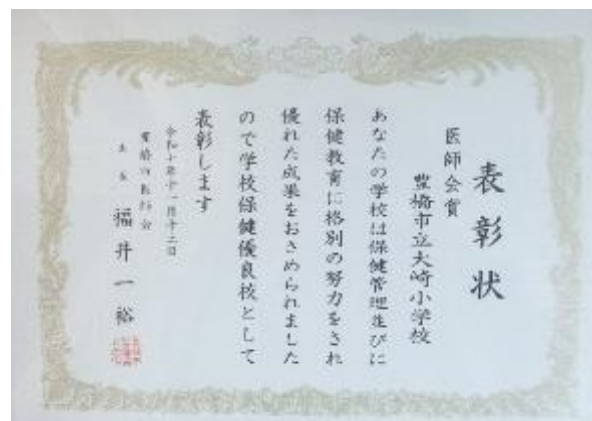 表彰状
医師会賞
豊橋市立大崎小学校
あなたの学校は保健管理並びに
保健教育に格別の努力をされ
優れた成果をおさめられました
ので学校保健優良校として
表彰します
豊橋市医師会
福井一裕